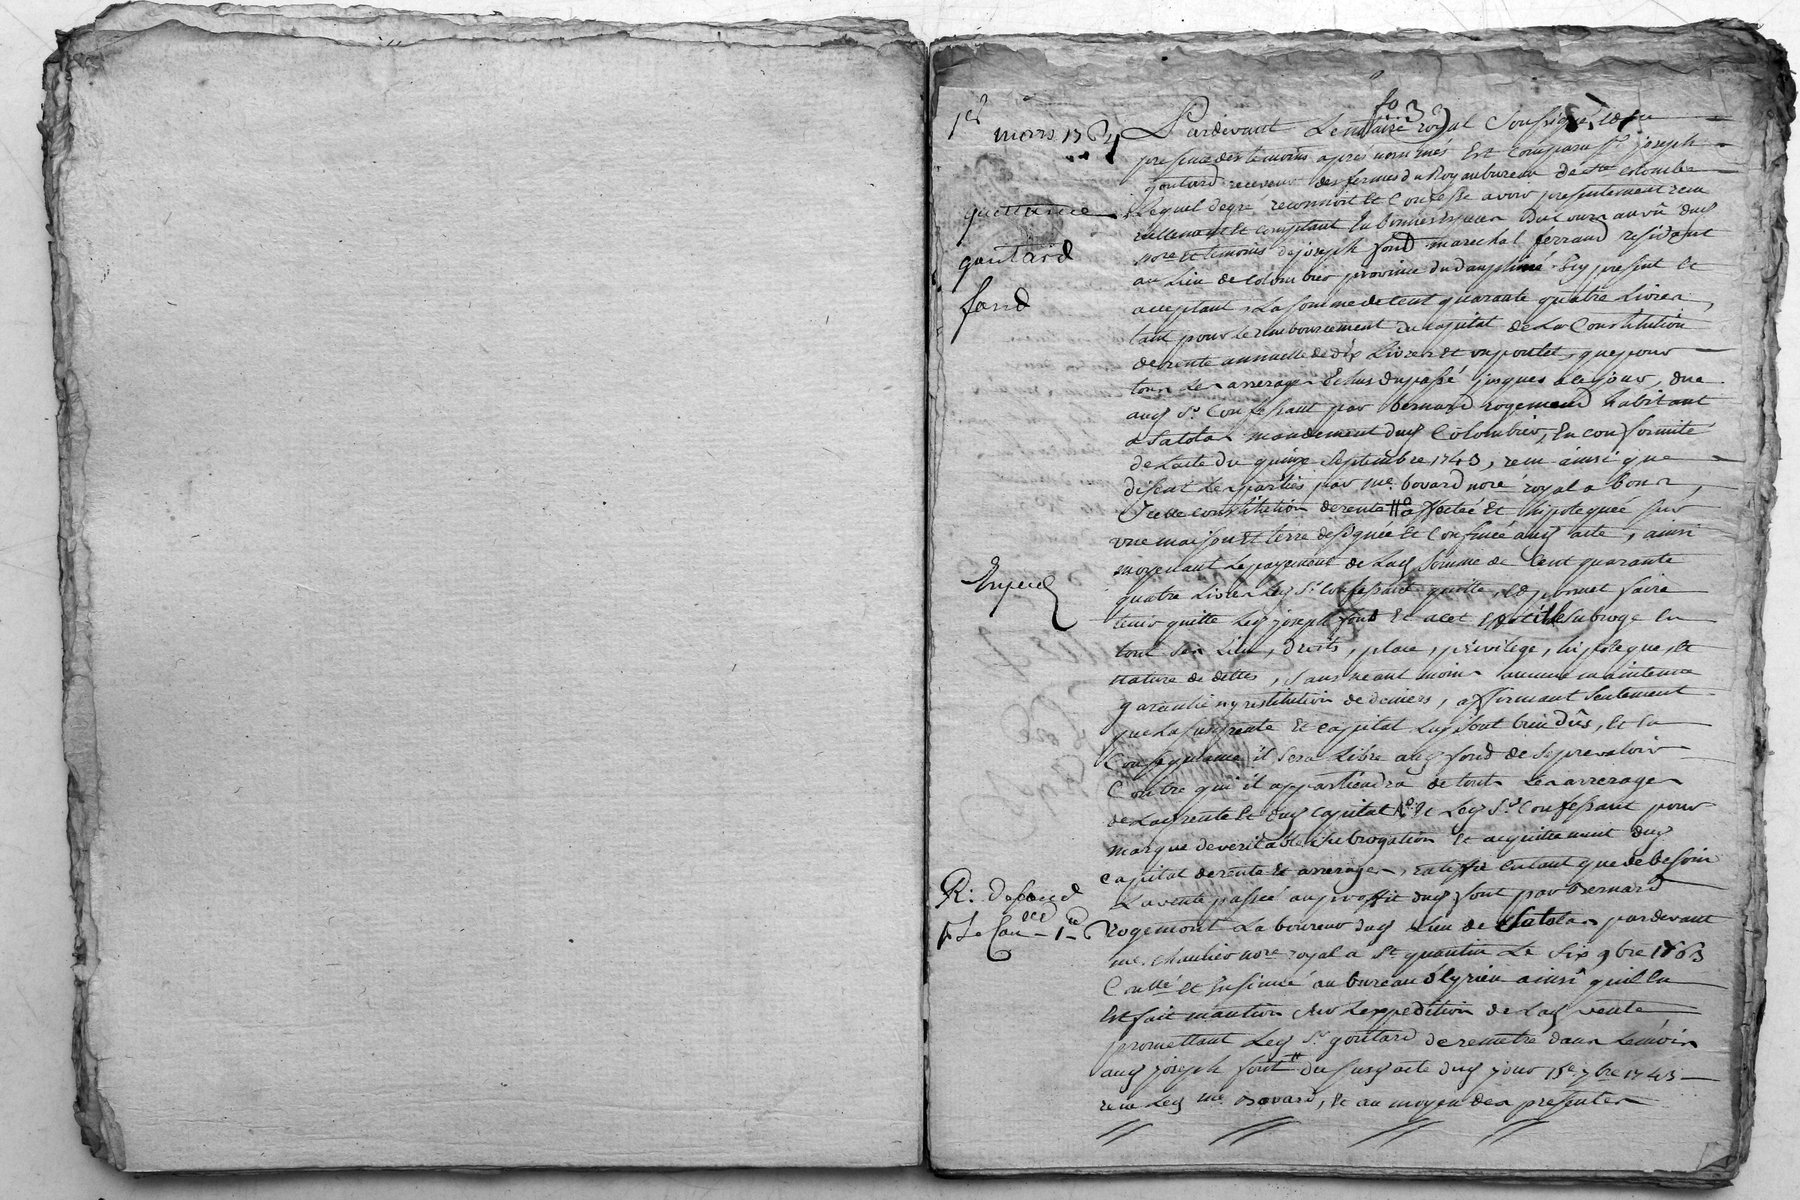 fo 3
1er mars 1764
quittance
goutard
fond
Expedié
R: de fond
Pardevant Le notaire royal soussigné et en
presence des temoins apres nommés Est comparu Sr joseph
goutard receveur des fermes du Roy au bureau de Ste colombe
Lequel de gre reconnoit et Confesse avoir presentement reçu
reellement et comptant En bonnes especes Du Cours au vû dud
nore et temoins de joseph fond marechal ferrand residant
au Lieu de colombier province du dauphiné Icy present et
acceptant, La somme de Cent quarante quatre Livres,
tant pour le remboursement du capital de La Constitution
de rente annuelle de dix Livres et un poulet, que pour
tous Les arrerages Echus du passé jusques a ce jour, due
aud Sr Confessant par bernard rogemond habitant
a Satolas mandement dud Colombier, En conformité
de Lacte du quinze septembre 1743, reçu ainsi que
disent Les parties par me. bovard nore royal a bon,
Icelle constitution de rente affectée Et hipotequée sur
une maison et terre designée et Confinée aud acte, ainsi
moyenant Le payement de Lad somme de Cent quarante
quatre Livres Led Sr confessant quitte, et promet faire
tenir quitte Led joseph fond Et a cet Effet il le subroge En
tous ses Lieu, droits, place, privilege, hipoteque, et
nature de dettes, sans neantmoins aucune maintenue
garantie ny restitution de deniers, affirmant seulement
que La susd rente Et capital Luy sont bien dûs, Et En
Consequence il sera Libre aud fond de se prevaloir
Contre qui il appartiendra de touts Les arrerages
de Lad rente Et dud Capital Et Led Sr Confessant pour
marque de veritable subrogation Et acquittement dud
capital de rente Et arrerages, ratiffie Entant que de besoin
La vente passée au proffit dud font par Bernard
rogemont La boureur dud Lieu de Satolas pardevant
me. Chaulier nore royal a St quentin Le six 9bre 1763
Collé et Ensinué au bureau d'heyrieu ainsi quil En
Est fait mention sur Lexpedition de Lad vente
promettant Led Sr goutard de remetre dans Le mois
aud joseph font du susd acte dud jour 15e. 7bre 1743
reçu Led me Bovard, et au moyen des presentes